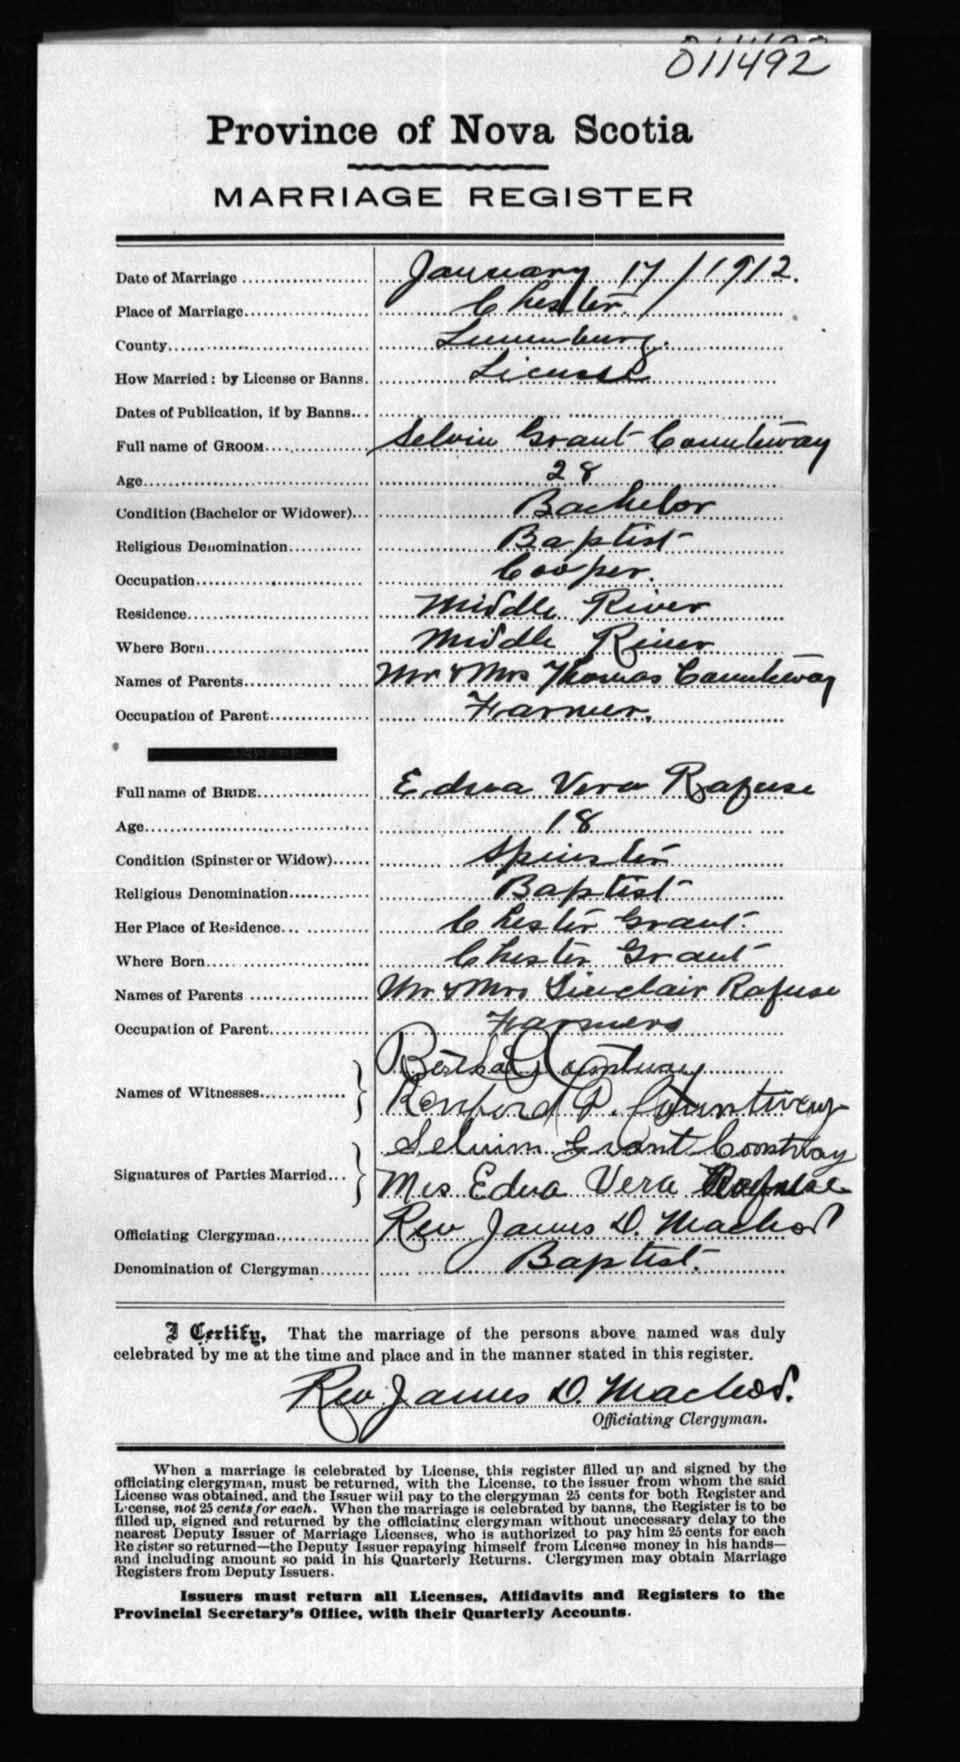 011492
Province of Nova Scotia
MARRIAGE REGISTER
Date of Marriage January 17 / 1912.
Place of Marriage Chester.
County Lunenburg.
How Married: by License or Banns. License
Dates of Publication, if by Banns
Full name of GROOM Selvin Grant Countway
Age 28
Condition (Bachelor or Widower) Bachelor
Religious Denomination Baptist
Occupation Cooper.
Residence Middle River
Where Born Middle River
Names of Parents Mr & Mrs Thomas Countway
Occupation of Parent Farmer.
Full name of BRIDE Edna Vera Rafuse
Age 18
Condition (Spinster or Widow) Spinster
Religious Denomination Baptist
Her Place of Residence Chester Grant.
Where Born Chester Grant
Names of Parents Mr & Mrs Sinclair Rafuse
Occupation of Parent Farmers
Names of Witnesses Bertha Countway
P. Countway
Signatures of Parties Married Selvim Grant Contway
Mis Edna Vera Rafuse
Officiating Clergyman Rev James D. MacLeod
Denomination of Clergyman Baptist.
I Certify, That the marriage of the persons above named was duly
celebrated by me at the time and place and in the manner stated in this register.
Rev James D. MacLeod.
Officiating Clergyman.
When a marriage is celebrated by License, this register filled up and signed by the
officiating clergyman, must be returned, with the License, to the issuer from whom the said
License was obtained, and the Issuer will pay to the clergyman 25 cents for both Register and
License, not 25 cents for each. When the marriage is celebrated by banns, the Register is to be
filled up, signed and returned by the officiating clergyman without unnecessary delay to the
nearest Deputy Issuer of Marriage Licenses, who is authorized to pay him 25 cents for each
Register so returned—the Deputy Issuer repaying himself from License money in his hands—
and including amount so paid in his Quarterly Returns. Clergymen may obtain Marriage
Registers from Deputy Issuers.
Issuers must return all Licenses, Affidavits and Registers to the
Provincial Secretary's Office, with their Quarterly Accounts.